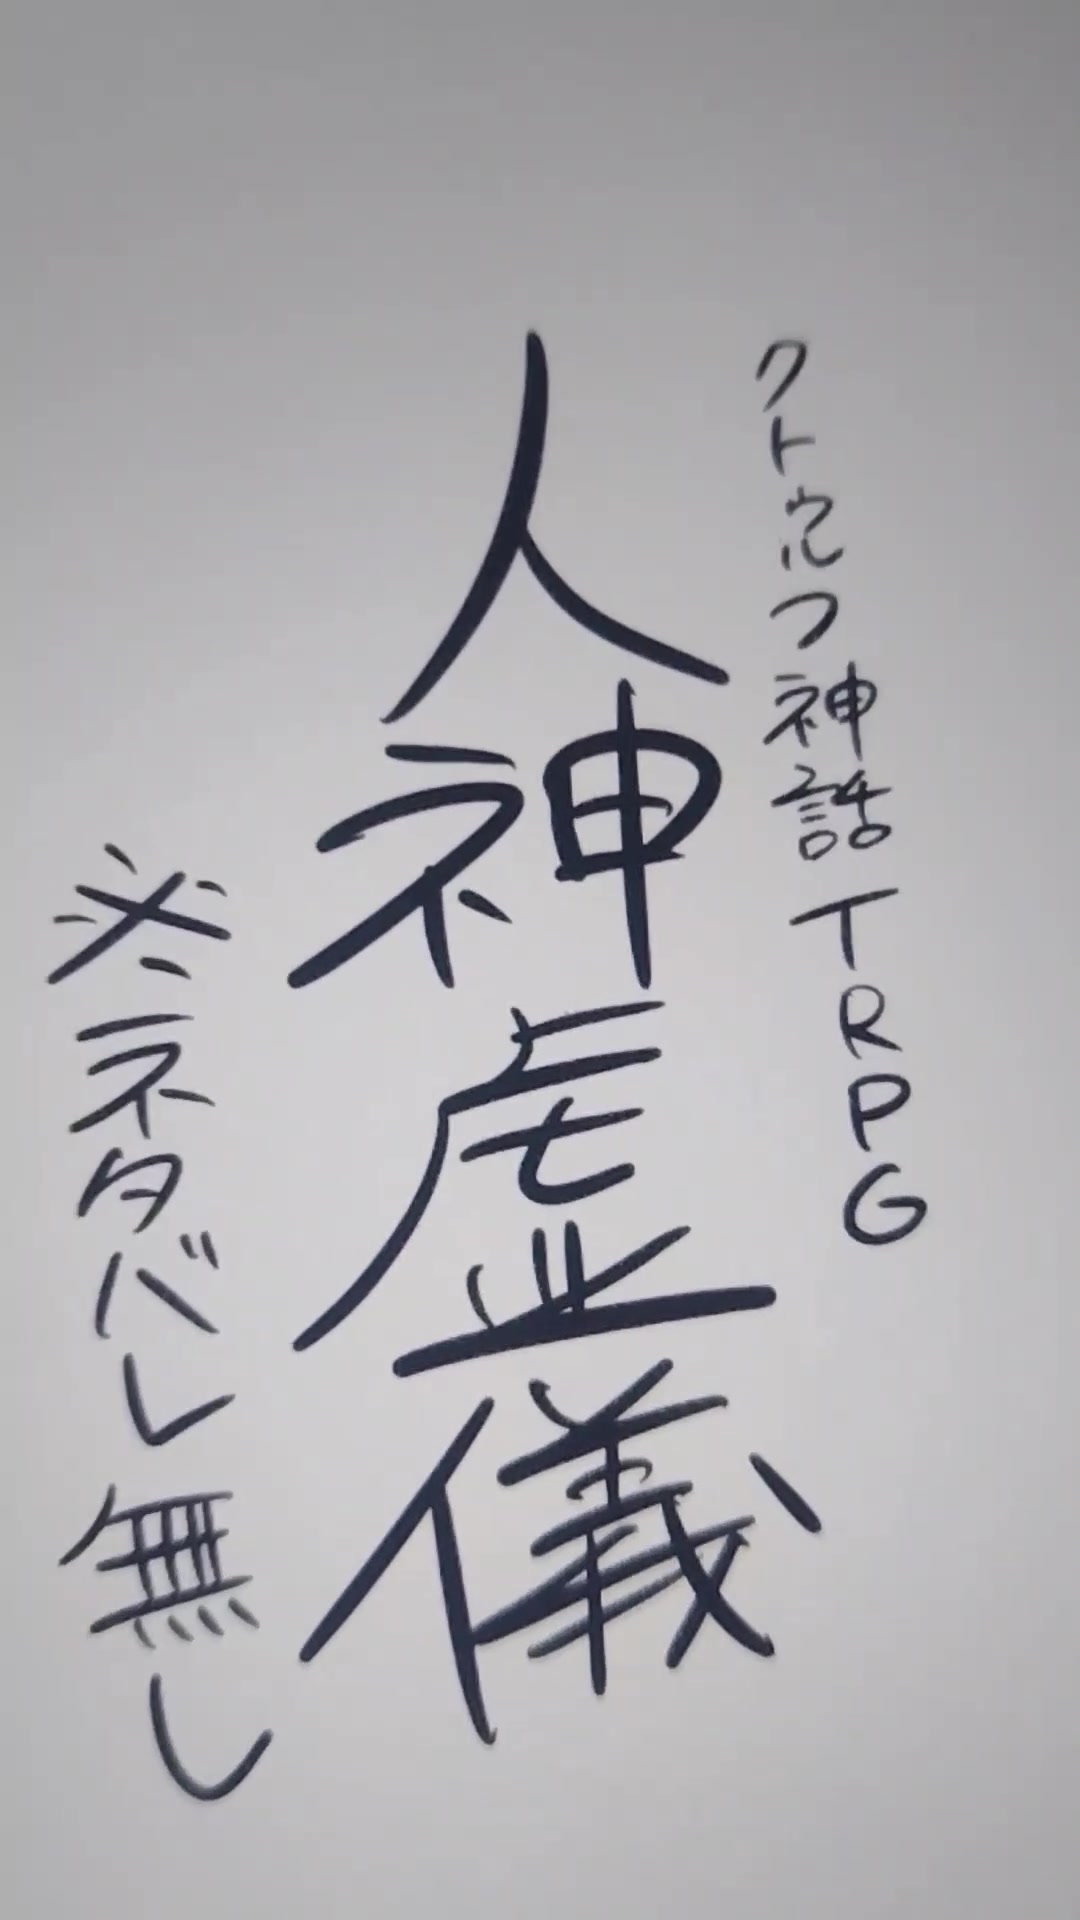 クトゥルフ神話TRPG
人神虚儀
※ネタバレ無し